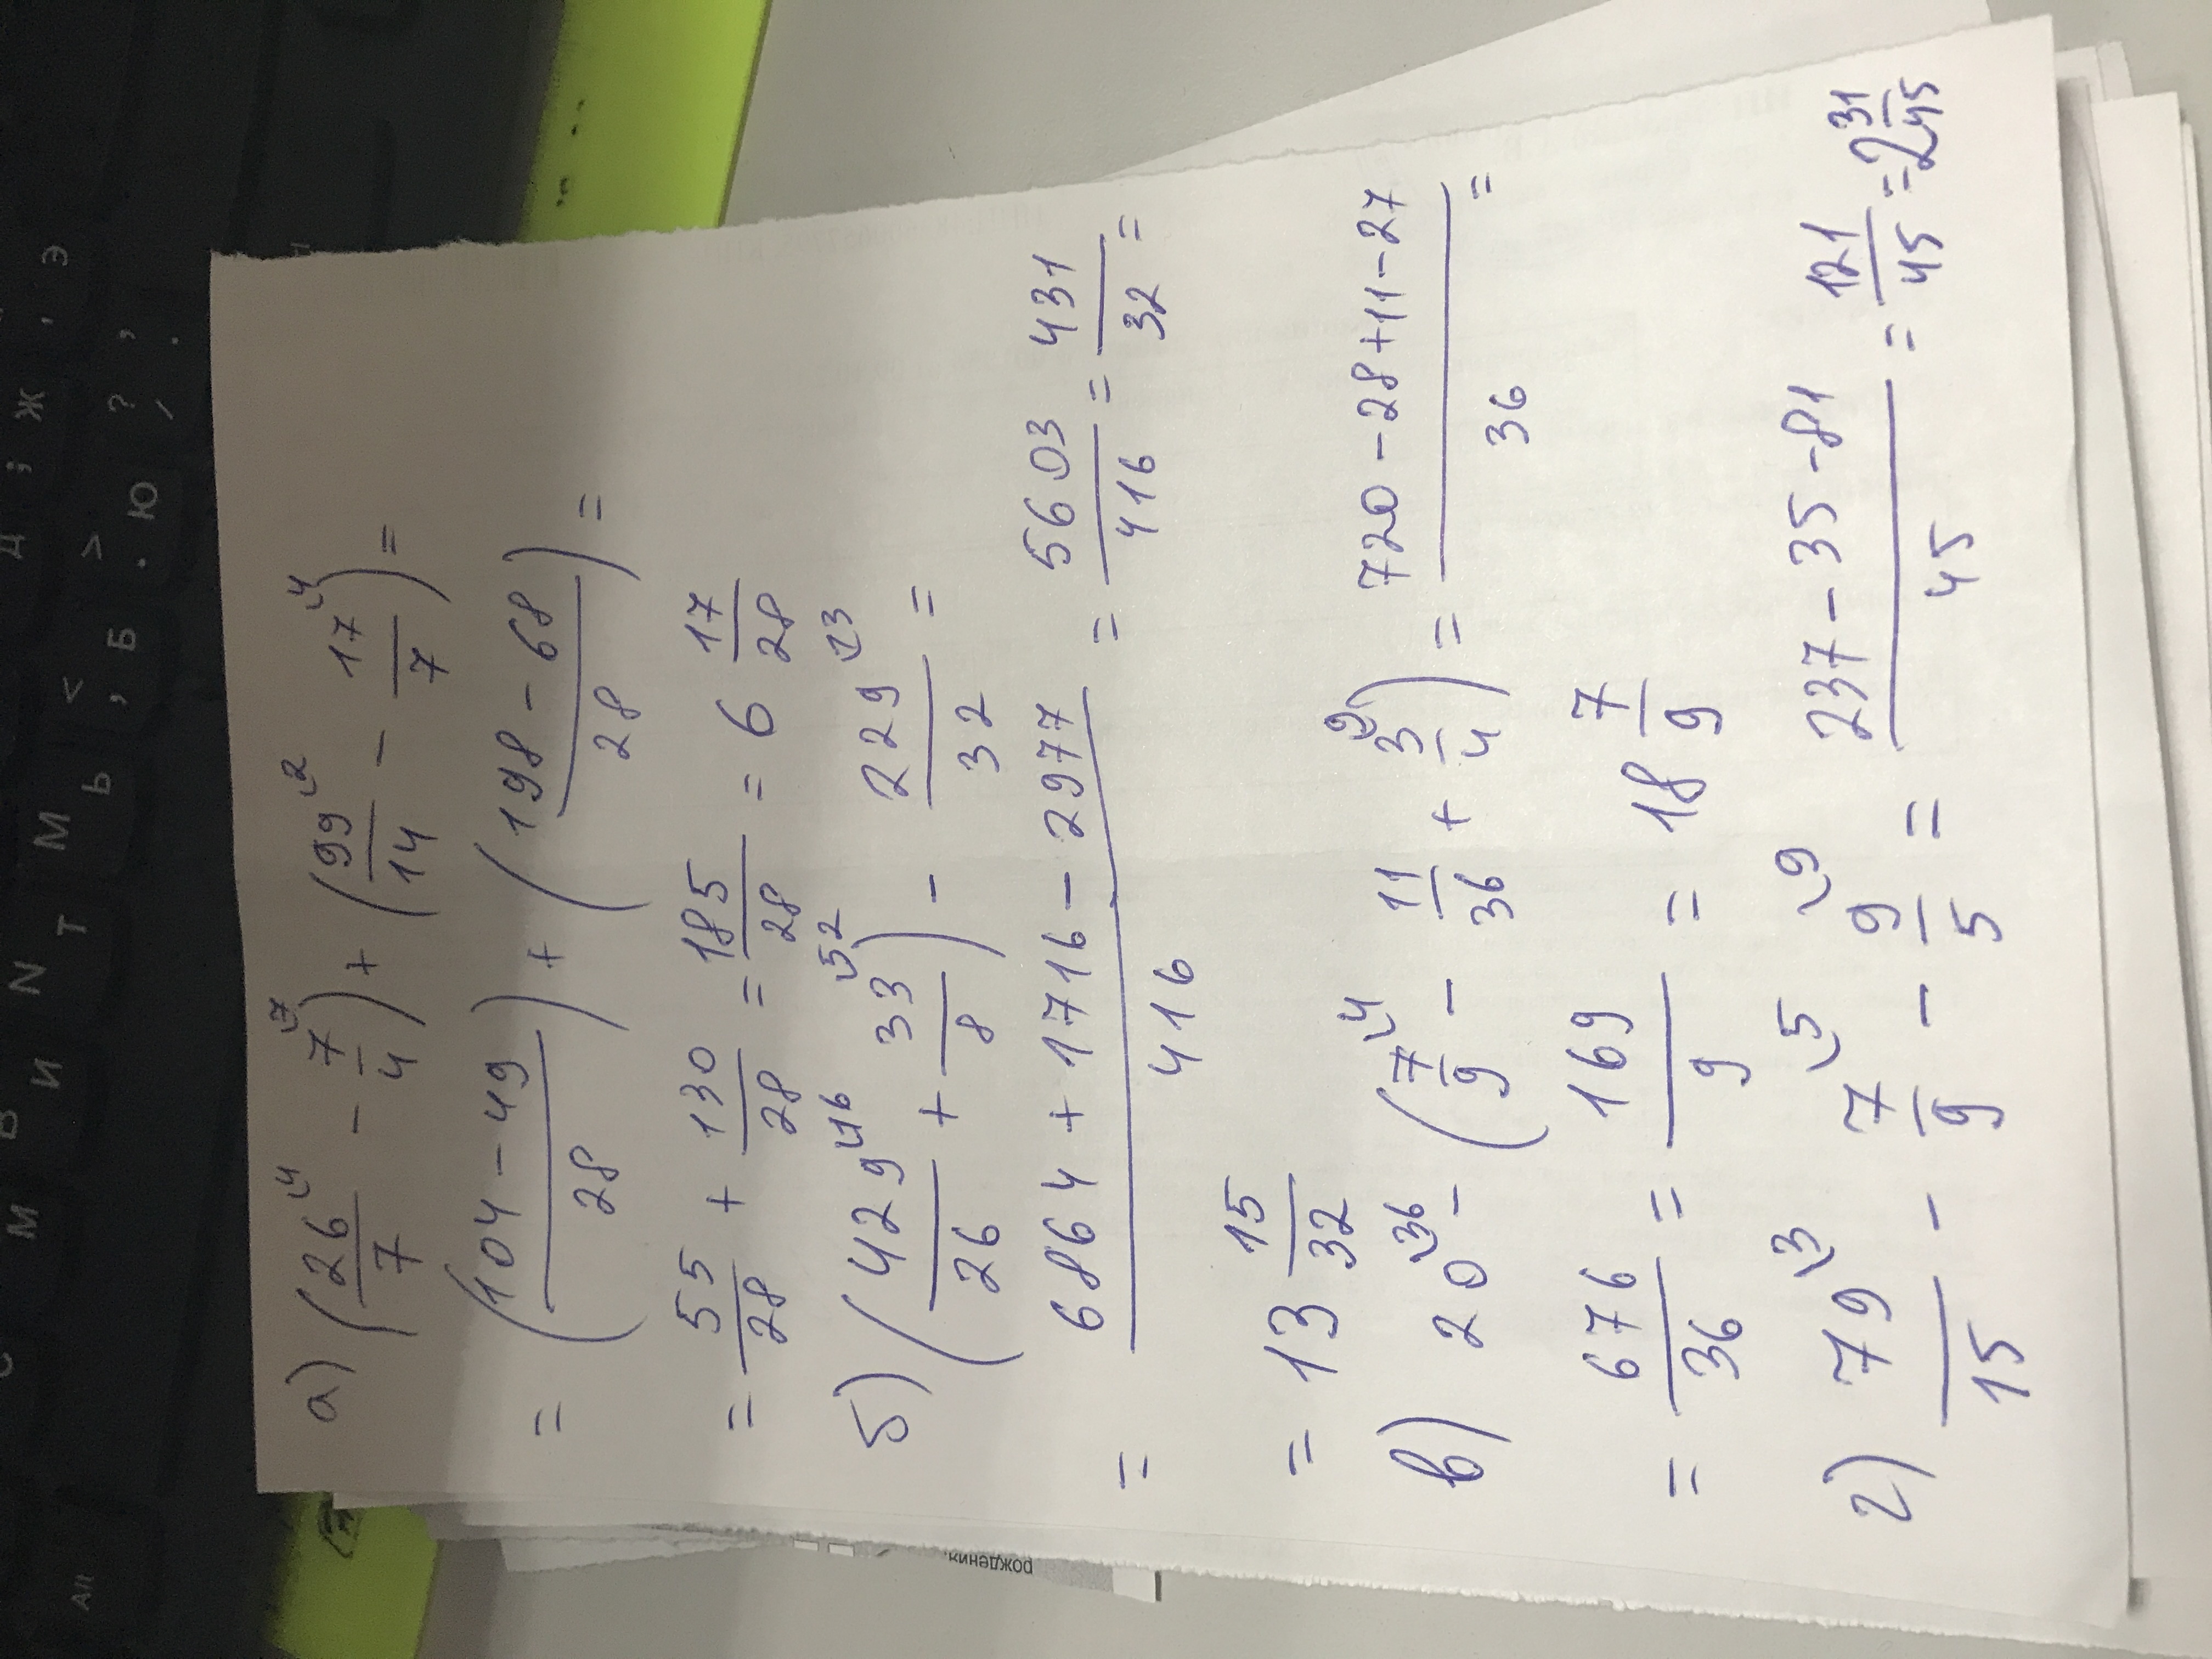 а) (26/7 ⁴ − 7/4 ⁷) + (99/14 ² − 17/7 ⁴) =
= (104 − 49/28) + (198 − 68/28) =
= 55/28 + 130/28 = 185/28 = 6 17/28
б) (429/26 ¹⁶ + 33/8 ⁵²) − 229/32 ¹³ =
= 6864 + 1716 − 2977/416 = 5603/416 = 431/32 =
= 13 15/32
в) 20 ³⁶ − (7/9 ⁴ − 11/36 + 3/4 ⁹) = 720 − 28 + 11 − 27/36 =
= 676/36 = 169/9 = 18 7/9
г) 79/15 ³ − 7/9 ⁵ − 9/5 ⁹ = 237 − 35 − 81/45 = 121/45 = 2 31/45
рождения.
Alt
М И Т Ь < , Б > . Ю ? , .
В N М
Д ; Ж , Э